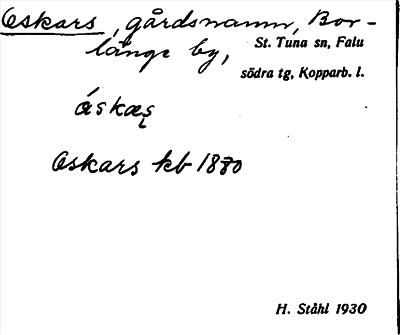 Oskars, gårdsnamn, Bor-
länge by, St. Tuna sn, Falu
södra tg, Kopparb. l.
áskæʂ
Oskars kb 1880
H. Ståhl 1930